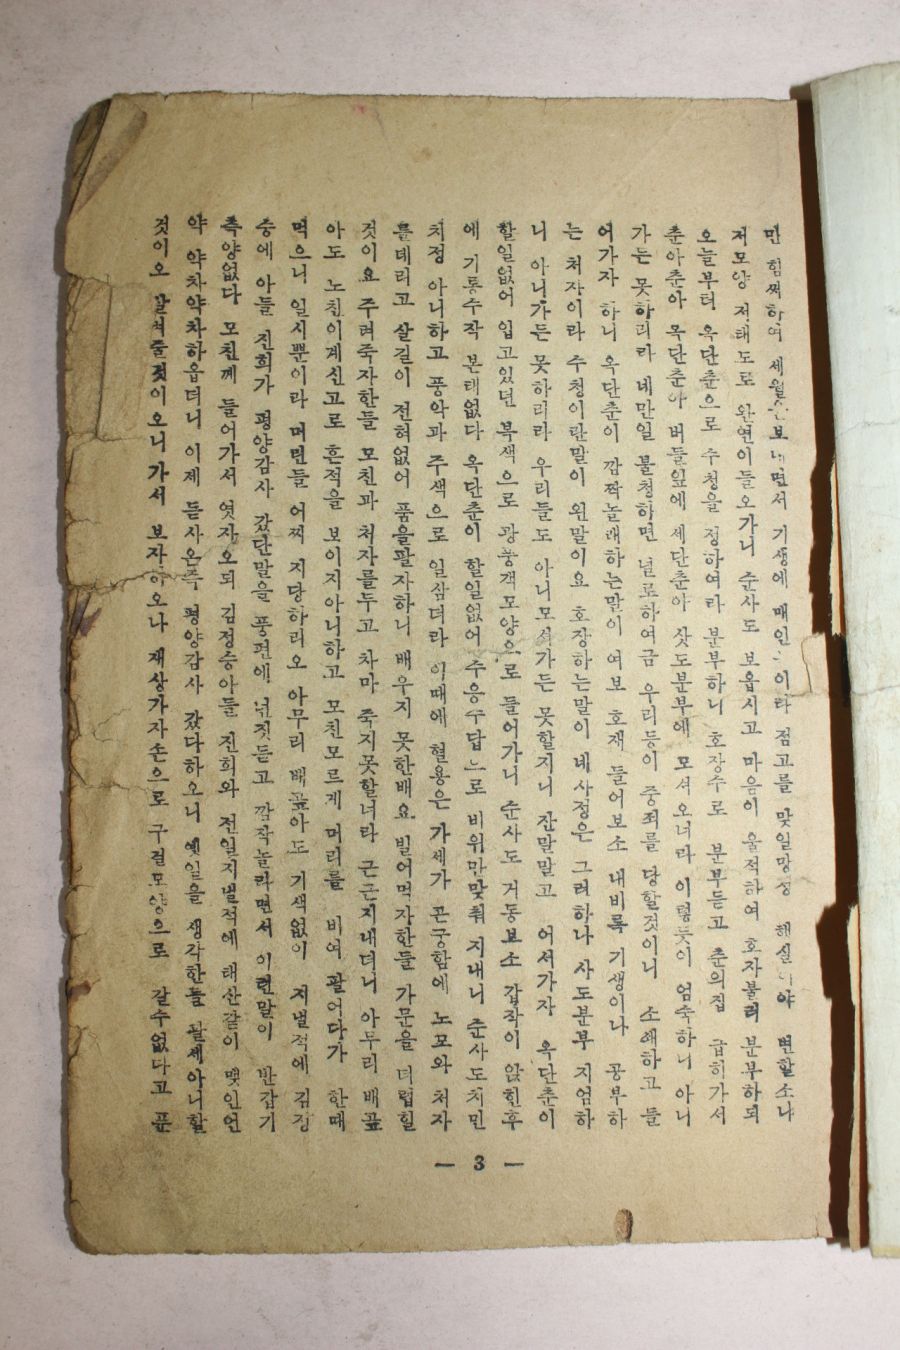 만 힘써하여 세월을보내면서 기생에 매인 이라 점고를 맞일망정 해실 야 변할소냐
저모양 저태도로 완연이들오가니 순사도 보옵시고 마음이 울적하여 호자불러 분부하되
오늘부터 옥단춘으로 수청을 정하여라 분부하니 호장수로 분부듣고 춘의집 급히가서
춘아춘아 옥단춘아 버들잎에 세단춘아 삿도분부에 모셔오너라 이렁듯이 엄숙하니 아니
가든 못하리라 네만일 불청하면 널로하여금 우리등이 중죄를 당할것이니 소쇄하고 들
어가자 하니 옥단춘이 깜짝놀래하는말이 여보 호재 들어보소 내비록 기생이나 공부하
는 처자이라 수청이란말이 왼말이요 호장하는말이 네사정은 그러하나 사도분부 지엄하
니 아니가든 못하리라 우리들도 아니모셔가든 못할지니 잔말말고 어서가자 옥단춘이
할일없어 입고있던 복색으로 광풍객모양으로 들어가니 순사도 거동보소 갑작이 앉힌후
에 기롱수작 본태없다 옥단춘이 할일없어 수응수답으로 비위만맞춰 지내니 순사도치민
치정 아니하고 풍악과 주색으로 일삼더라 이때에 혈룡은 가세가 곤궁함에 노모와 처자
를데리고 살길이 전혀없어 품을팔자하니 배우지 못한배요 빌어먹자한들 가문을 더럽힐
것이요 주려죽자한들 모친과 처자를두고 차마 죽지못할너라 근근지내더니 아무리 배곺
아도 노친이계신고로 흔적을 보이지아니하고 모친모르게 머리를 비여 팔어다가 한때
먹으니 일시뿐이라 머린들 어찌 지당하리오 아무리 배곺아도 기색없이 지낼적에 김정
승에 아들 진희가 평양감사 갔단말을 풍편에 넌짓듣고 깜작놀라면서 이런말이 반갑기
측양없다 모친께 들어가서 엿자오되 김정승아들 진희와 전일지낼적에 태산같이 맺인언
약 약차약차하옵더니 이제 듣사온즉 평양감사 갔다하오니 옛일을 생각한들 괄세아니할
것이오 살려줄것이오니가서 보자하오나 재상가자손으로 구걸모양으로 갈수없다고 푼
— 3 —